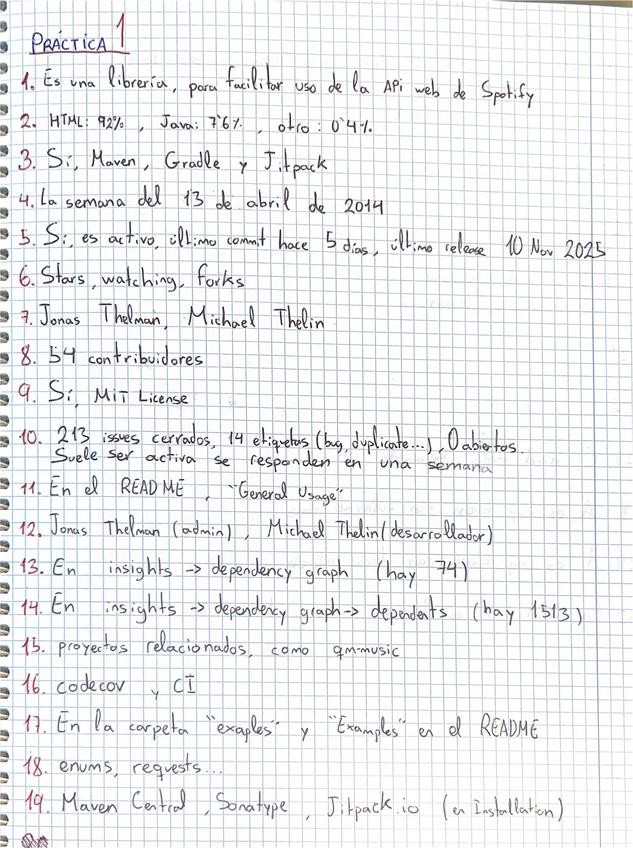 PRÁCTICA 1
1. Es una librería, para facilitar uso de la API web de Spotify
2. HTML: 92%, Java: 7'6%, otro: 0'4%
3. Sí, Maven, Gradle y Jitpack
4. La semana del 13 de abril de 2014
5. Sí, es activo, último commit hace 5 días, último release 10 Nov 2025
6. Stars, watching, forks
7. Jonas Thelman, Michael Thelin
8. 54 contribuidores
9. Sí, MIT License
10. 213 issues cerrados, 14 etiquetas (bug, duplicate...), 0 abiertos.
Suele ser activa se responden en una semana
11. En el README, "General Usage"
12. Jonas Thelman (admin), Michael Thelin (desarrollador)
13. En insights -> dependency graph (hay 74)
14. En insights -> dependency graph -> dependents (hay 1513)
15. proyectos relacionados, como qm-music
16. codecov y CI
17. En la carpeta "exaples" y "Examples" en el README
18. enums, requests...
19. Maven Central, Sonatype, Jitpack.io (en Installation)